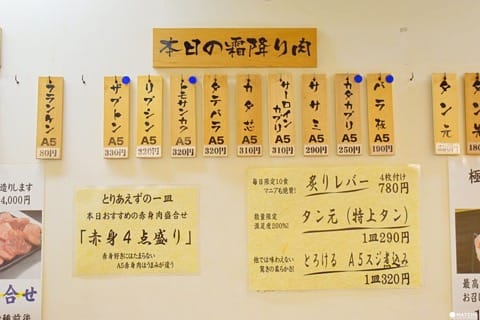 本日の霜降り肉
フランケン
A5
80円
ザブトン
A5
330円
リブシン
A5
320円
トモサンカク
A5
320円
タテバラ
A5
320円
カタ芯
A5
310円
サーロインカブリ
A5
310円
ササミ
A5
290円
カタカブリ
A5
250円
バラ
A5
190円
タン元
タン
180
造りします
4,000円
合せ
とりあえずの一皿
本日おすすめの赤身肉盛合せ
「赤身4点盛り」
赤身好きにはたまらない
A5赤身肉はうまみが違う
毎日限定10食
マニアも絶賛!
炙りレバー
4枚付け
780円
数量限定
満足度200%!
タン元(特上タン)
1皿290円
他では味わえない
驚きの柔らかさ!
とろける A5スジ煮込み
1皿320円
極
最高
お召
MATCHA